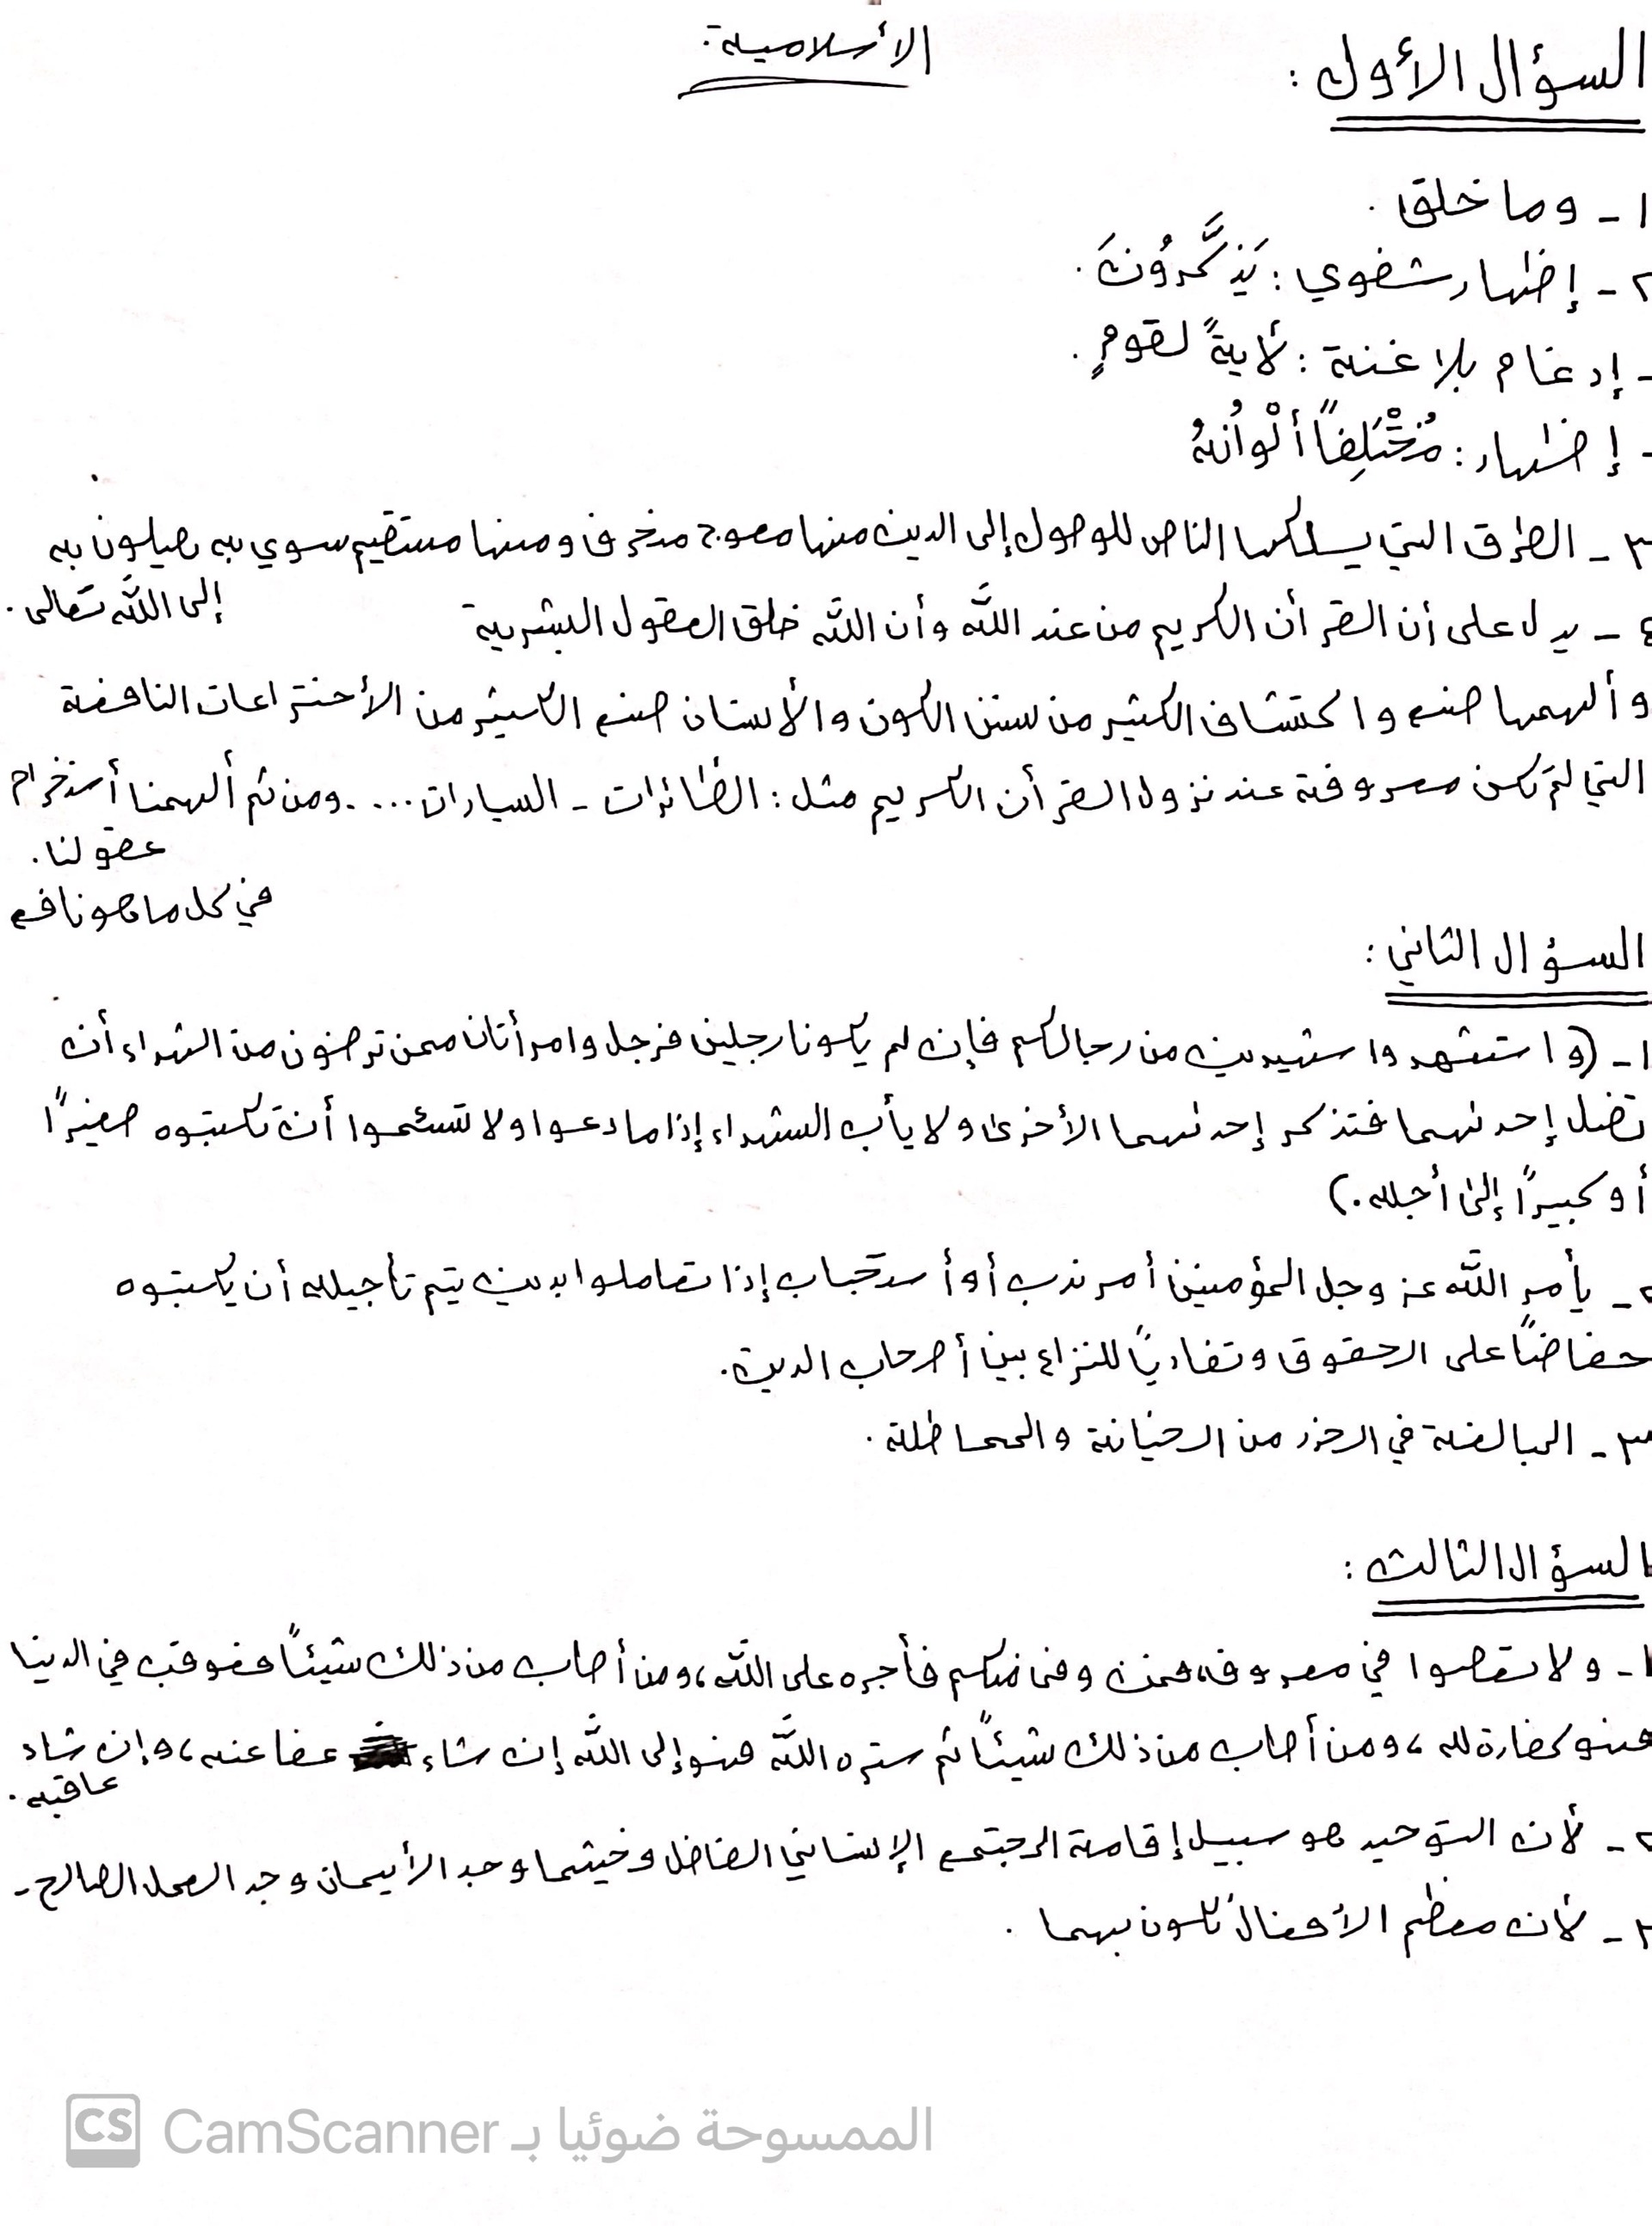 الأسلامية:
السؤال الأول:
١- وما خلق.
٢- إظهار شفوي: يَذَّكَّرُونَ.
- إدغام بلا غنة: لأيةً لقومٍ.
- إظهار: مُخْتَلِفاً أَلْوَانُهُ
٣- الطرق التي يسلكها الناس للوصول إلى الدين منها معوج منحرف ومنها مستقيم سوي به يصلون به
إلى الله تعالى.
٤- يدل على أن القرأن الكريم من عند الله وأن الله خلق العقول البشرية
وألهمها صنع واكتشاف الكثير من سنن الكون والأنسان صنع الكثير من الأختراعات النافعة
التي لم تكن معروفة عند نزول القرأن الكريم مثل: الطائرات - السيارات .... ومن ثم ألهمنا أستخدام
عقولنا.
في كل ما هو نافع
السؤال الثاني:
١- (واستشهدوا شهيدين من رجالكم فإن لم يكونا رجلين فرجل وامرأتان ممن ترضون من الشهداء أن
تضل إحدىهما فتذكر إحدىهما الأخرى ولا يأب الشهداء إذا ما دعوا ولا تسئموا أن تكتبوه صغيراً
أو كبيراً إلى أجله.)
٢- يأمر الله عز وجل المؤمنين أمر ندب أو أستحباب إذا تعاملوا بدين يتم تأجيله أن يكتبوه
حفاضاً على الحقوق وتفادياً للنزاع بين أصحاب الدين.
٣- المبالغة في الحذر من الخيانة والمماطلة.
السؤال الثالث:
١- ولا تعصوا في معروف، فمن وفى منكم فأجره على الله، ومن أصاب من ذلك شيئاً فعوقب في الدنيا
فهو كفارة له، ومن أصاب من ذلك شيئاً ثم ستره الله فهو إلى الله إن شاء عفا عنه، وإن شاء
عاقبه.
٢- لأن التوحيد هو سبيل إقامة المجتمع الإنساني الفاضل وحيثما وجد الأيمان وجد العمل الصالح.
٣- لأن معظم الأفعال تكون بهما.
الممسوحة ضوئيا بـ CamScanner
CS